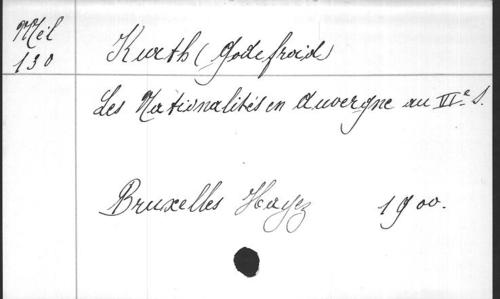 Mél
130
Kurth (Godefroid)
Les Nationalités en Auvergne au VIe S.
Bruxelles Hayez 1900.